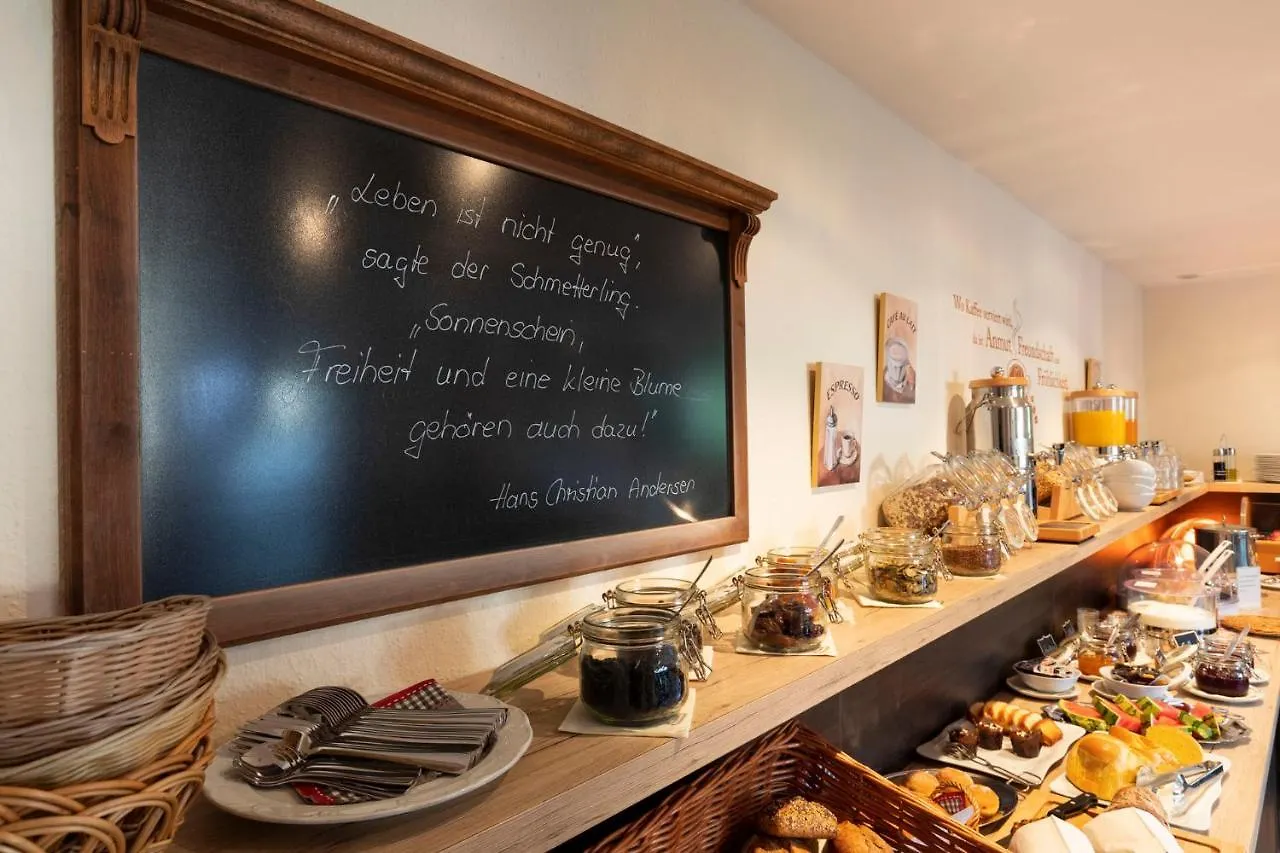 „Leben ist nicht genug",
sagte der Schmetterling.
„Sonnenschein,
Freiheit und eine kleine Blume
gehören auch dazu!"
Hans Christian Andersen
ESPRESSO
CAFÉ AU LAIT
Wo Kaffee serviert wird,
da ist Anmut, Freundschaft und
Fröhlichkeit